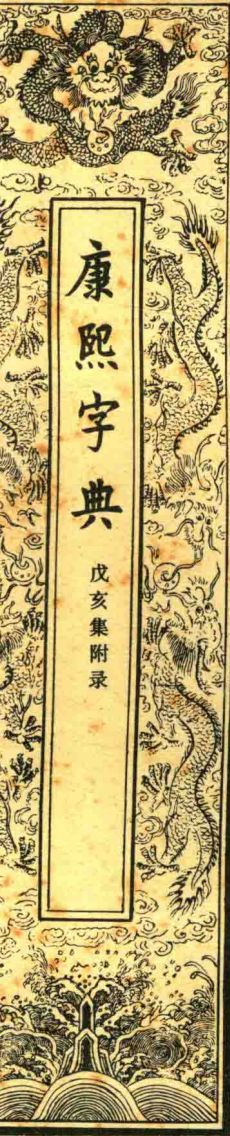 康熙字典
戊亥集附录